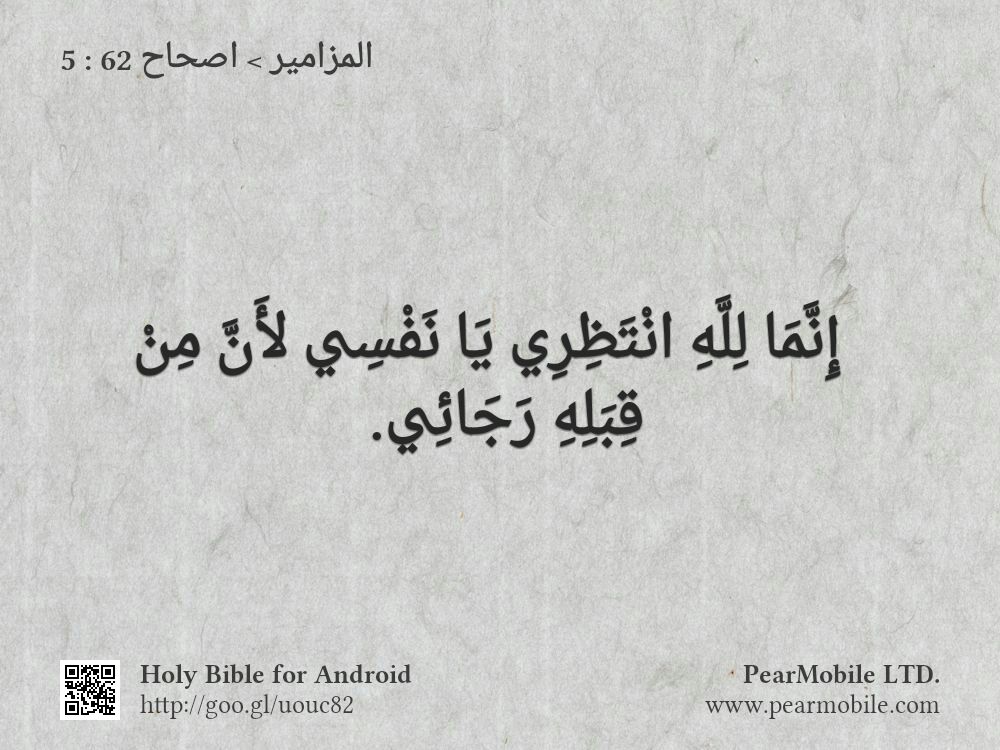 المزامير > اصحاح 62 : 5
إِنَّمَا لِلَّهِ انْتَظِرِي يَا نَفْسِي لأَنَّ مِنْ
قِبَلِهِ رَجَائِي.
Holy Bible for Android
http://goo.gl/uouc82
PearMobile LTD.
www.pearmobile.com